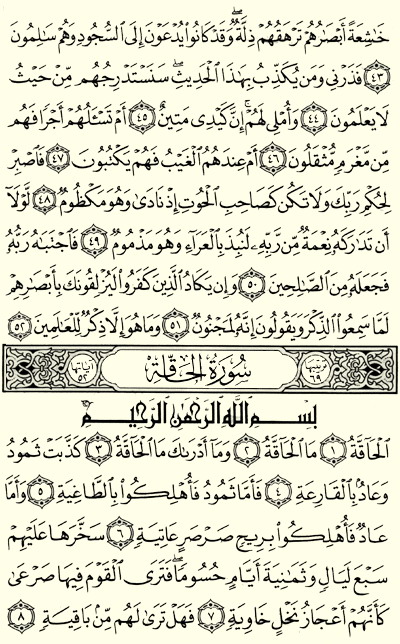 خَـٰشِعَةً أَبْصَـٰرُهُمْ تَرْهَقُهُمْ ذِلَّةٌ ۖ وَقَدْ كَانُوا۟ يُدْعَوْنَ إِلَى ٱلسُّجُودِ وَهُمْ سَـٰلِمُونَ
﴿٤٣﴾ فَذَرْنِى وَمَن يُكَذِّبُ بِهَـٰذَا ٱلْحَدِيثِ ۖ سَنَسْتَدْرِجُهُم مِّنْ حَيْثُ
لَا يَعْلَمُونَ ﴿٤٤﴾ وَأُمْلِى لَهُمْ ۚ إِنَّ كَيْدِى مَتِينٌ ﴿٤٥﴾ أَمْ تَسْـَٔلُهُمْ أَجْرًا فَهُم
مِّن مَّغْرَمٍ مُّثْقَلُونَ ﴿٤٦﴾ أَمْ عِندَهُمُ ٱلْغَيْبُ فَهُمْ يَكْتُبُونَ ﴿٤٧﴾ فَٱصْبِرْ
لِحُكْمِ رَبِّكَ وَلَا تَكُن كَصَاحِبِ ٱلْحُوتِ إِذْ نَادَىٰ وَهُوَ مَكْظُومٌ ﴿٤٨﴾ لَّوْلَآ
أَن تَدَٰرَكَهُۥ نِعْمَةٌ مِّن رَّبِّهِۦ لَنُبِذَ بِٱلْعَرَآءِ وَهُوَ مَذْمُومٌ ﴿٤٩﴾ فَٱجْتَبَـٰهُ رَبُّهُۥ
فَجَعَلَهُۥ مِنَ ٱلصَّـٰلِحِينَ ﴿٥٠﴾ وَإِن يَكَادُ ٱلَّذِينَ كَفَرُوا۟ لَيُزْلِقُونَكَ بِأَبْصَـٰرِهِمْ
لَمَّا سَمِعُوا۟ ٱلذِّكْرَ وَيَقُولُونَ إِنَّهُۥ لَمَجْنُونٌ ﴿٥١﴾ وَمَا هُوَ إِلَّا ذِكْرٌ لِّلْعَـٰلَمِينَ ﴿٥٢﴾
ترتيبها ٦٩ سُورَةُ الْحَاقَّةِ آياتها ٥٢
بِسْمِ ٱللَّهِ ٱلرَّحْمَـٰنِ ٱلرَّحِيمِ
ٱلْحَآقَّةُ ﴿١﴾ مَا ٱلْحَآقَّةُ ﴿٢﴾ وَمَآ أَدْرَىٰكَ مَا ٱلْحَآقَّةُ ﴿٣﴾ كَذَّبَتْ ثَمُودُ
وَعَادٌۢ بِٱلْقَارِعَةِ ﴿٤﴾ فَأَمَّا ثَمُودُ فَأُهْلِكُوا۟ بِٱلطَّاغِيَةِ ﴿٥﴾ وَأَمَّا
عَادٌ فَأُهْلِكُوا۟ بِرِيحٍ صَرْصَرٍ عَاتِيَةٍ ﴿٦﴾ سَخَّرَهَا عَلَيْهِمْ
سَبْعَ لَيَالٍ وَثَمَـٰنِيَةَ أَيَّامٍ حُسُومًا ۖ فَتَرَى ٱلْقَوْمَ فِيهَا صَرْعَىٰ
كَأَنَّهُمْ أَعْجَازُ نَخْلٍ خَاوِيَةٍ ﴿٧﴾ فَهَلْ تَرَىٰ لَهُم مِّنۢ بَاقِيَةٍ ﴿٨﴾